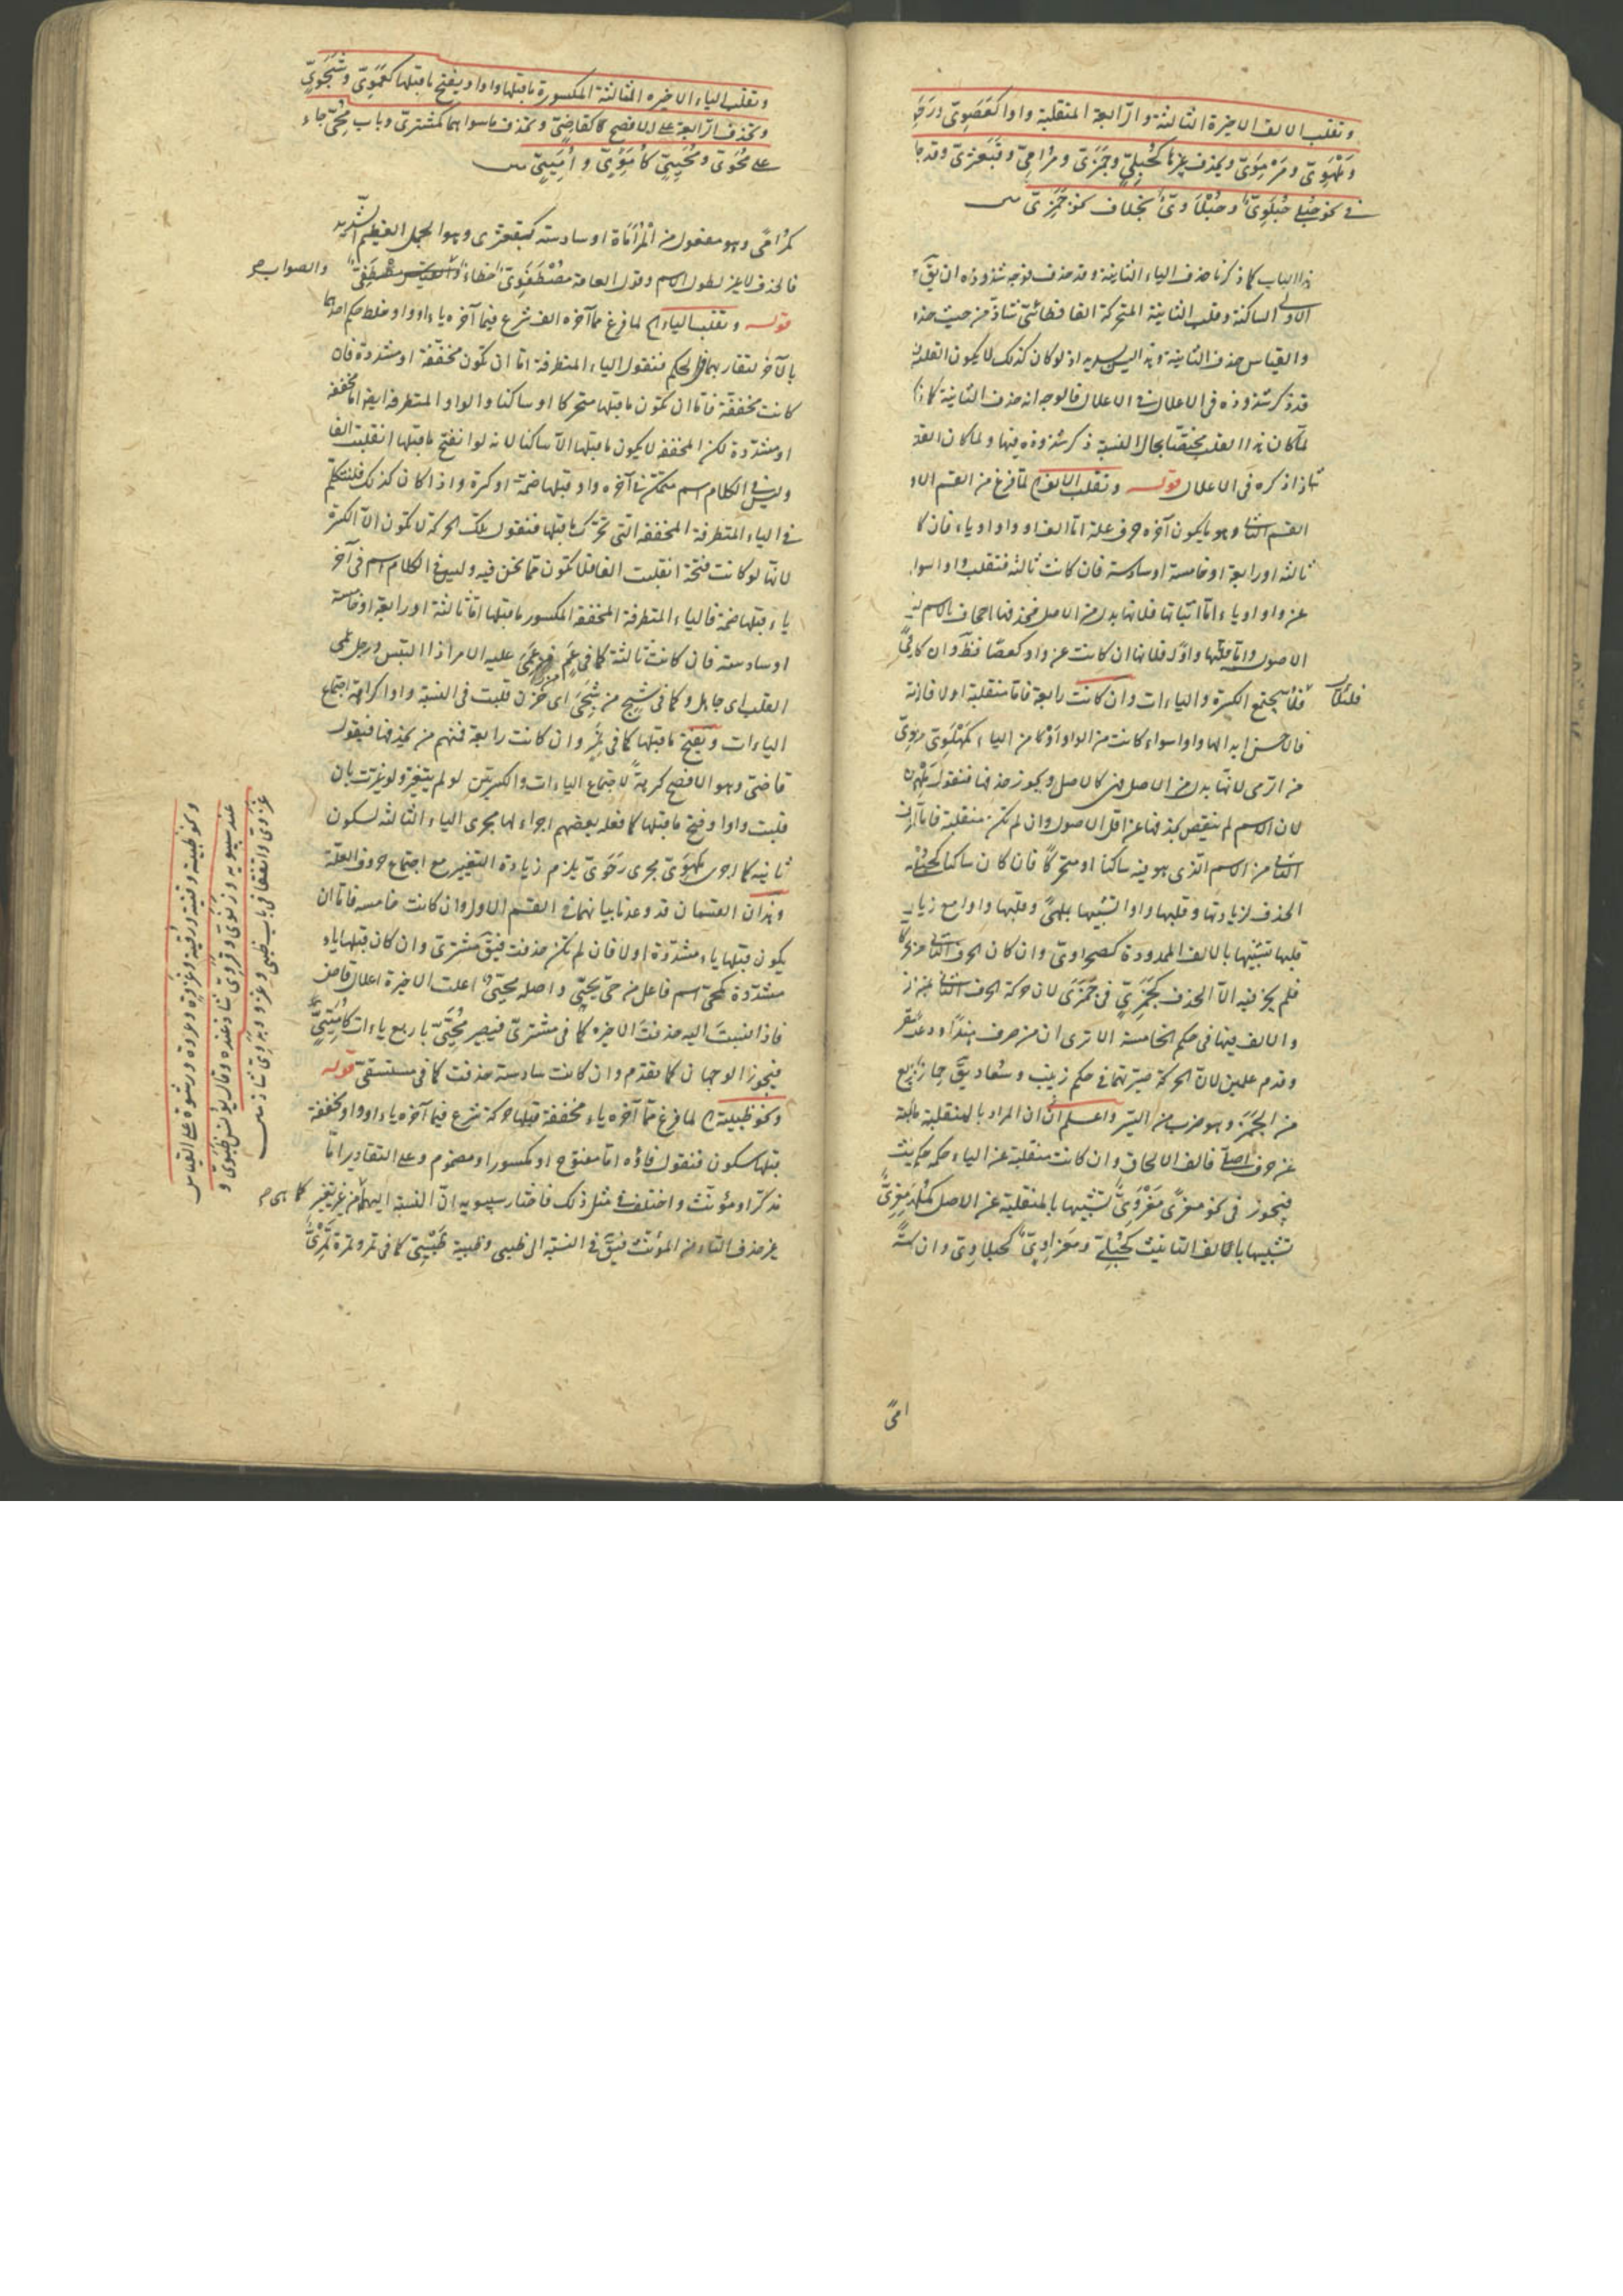 وتقلب الالف الاخيرة الثالثة والرابعة المنقلبة واوا كعَصَوِىّ ورَحَوِىّ
ومَلْهَوِىّ ومَرْمَوِىّ ويحذف غيرها كحُبْلِىّ وجَمَزِىّ ومُرَامِىّ وقَبَعْثَرِىّ وقد جا
فى نحو حبلى حُبْلَوِىّ وحُبْلَاوِىّ بخلاف نحو جَمَزَىّ
هذا الباب كما ذكرنا حذف الياء الثانية وقد حذف لوجه شذوذه ان يق
الاولى الساكنة وقلب الثانية المتحركة الفا فطائىّ شاذ من حيث حذ
والقياس حذف الثانية وهذا ليس بسديد اذ لو كان كذلك لا يكون القلب
قد ذكر شذوذه فى الاعلال فى الاعلال فالوجه انه حذف الثانية كما
لما كان هذا القلب مختصا بحال النسبة ذكر شذوذه فيها ولما كان القلب
شاذا ذكره فى الاعلال قوله وتقلب الالف لما فرغ من القسم الاو
القسم الثانى وهو ما يكون آخره حرف علة اما الف او واو او ياء فان كا
ثالثة او رابعة او خامسة او سادسة فان كانت ثالثة فتقلب واوا سوا
عن واو او ياء اما اثباتها فلانها بدل من الاصل فحذفها اجحاف بالاسم
الاصول واما قلبها واوا فلانها ان كانت عن واو كعصا فظ وان كا
فلئلا يجتمع الكسرة والياءات وان كانت رابعة فاما منقلبة اولا فان
فلئلا
فالاحسن ابدالها واوا سواء كانت من الواو او من الياء كملهوىّ
من الرمى لانها بدل من الاصل فهى كالاصل ويجوز حذفها فتقول ملهىّ
لان الاسم لم ينقص بحذفها عن اقل الاصول وان لم تكن منقلبة فاما ان
الثانى من الاسم الذى هو فيه ساكنا او متحركا فان كان ساكنا كحبلى
الحذف لزيادتها وقلبها واوا تشبيها بملهى وقلبها واوا مع زيا
قبلها تشبيها بالالف الممدودة كصحراوىّ وان كان الحرف الثانى متحركا
فلم يجز فيه الا الحذف كجَمَزِىّ فى جَمَزَى لان حركة الحرف الثانى
والالف فيها فى حكم الخامسة الا ترى ان من صرف هندا ودعدا
وقدم علمين لان الحركة صيرتهما فى حكم زينب وسعاد يق حمار
من الجمز وهو ضرب من السير واعلم ان المراد بالمنقلبة
عن حرف اصلى فالف الالحاق وان كانت منقلبة عن الياء حكمه حكم
فيجوز فى نحو معزى مَعْزَوِىّ تشبيها بالمنقلبة عن الاصل كملهى ومعزىّ
تشبيها بالالف التانيث كحُبْلِىّ ومعزاوىّ كحبلاوىّ وان
وتقلب الياء الاخيرة الثالثة المكسورة ما قبلها واوا ويفتح ما قبلها كعَمَوِىّ وشَجَوِىّ
وتحذف الرابعة على الافصح كقاضىّ وتحذف ما سواهما كمشترىّ وباب مُحَىّ جاء
على مُحَوىّ ومُحَيِّىّ كاُمَوِىّ واُمَيِّىّ
كمرامًى وهو مفعول من المراماة او سادسة كقبعثرى وهو الجمل العظيم الشديد
فالحذف لا غير لطول الاسم وقول العامة مُصْطَفَوِىّ خطاء والصواب
قوله وتقلب الياء لما فرغ مما آخره الف شرع فيما آخره ياء او واو وخلط حكم احدهما
بالآخر لتقاربهما فى الحكم فنقول الياء المتطرفة اما ان تكون مخففة او مشددة فان
كانت مخففة فاما ان تكون ما قبلها متحركا او ساكنا والواو المتطرفة ايضا اما مخففة
او مشددة لكن المخففة لا يكون ما قبلها الا ساكنا لانه لو انفتح ما قبلها انقلبت الفا
وليس فى الكلام اسم متمكن فى آخره واو قبلها ضمة او كسرة واذا كان كذلك فلنتكلم
فى الياء المتطرفة المخففة التى تحرك ما قبلها فنقول تلك الحركة لا تكون الا الكسرة
لانها لو كانت فتحة انقلبت الفا فلا تكون مما نحن فيه وليس فى الكلام اسم فى آخر
ياء قبلها ضمة فالياء المتطرفة المخففة المكسور ما قبلها اما ثالثة او رابعة او خامسة
او سادسة فان كانت ثالثة كما فى عَمٍ من عَمِىَ عليه الامر اذا التبس ورجل عمى
القلب اى جاهل وكما فى شجٍ من شَجِىَ اى حزن قلبت فى النسبة واوا كراهة اجتماع
الياءات ويفتح ما قبلها كما فى نمر وان كانت رابعة فمنهم من يحذفها فيقول
قاضىّ وهو الافصح كراهة لاجتماع الياءات والكسرتين لو لم يتغير ولو غيرت بان
قلبت واوا وفتح ما قبلها كما فعله بعضهم اجراء لها مجرى الياء الثالثة لسكون
ثانيه كما اجرى ملهوىّ مجرى رحوىّ يلزم زيادة التغيير مع اجتماع حروف العلة
وهذان القسمان قد وعدنا بيانهما فى القسم الاول وان كانت خامسة فاما ان
يكون قبلها ياء مشددة اولا فان لم تكن حذفت فيق مشترىّ وان كان قبلها ياء
مشددة كمحىّ اسم فاعل من حيّى يحيّى واصله محيّى اعلت الاخيرة اعلال قاض
فاذا نسبت اليه حذفت الاخيرة كما فى مشترىّ فيصير مُحَيِّىّ باربع ياءات كاُمَيِّىّ
فيجوز الوجهان كما تقدم وان كانت سادسة حذفت كما فى مستسقىّ قوله
ونحو ظبية لما فرغ مما آخره ياء مخففة قبلها حركة شرع فيما آخره ياء او واو مخففة
قبلها سكون فنقول فاؤه اما مفتوح او مكسور او مضموم وعلى التقادير اما
مذكر او مؤنث واختلف فى مثل ذلك فاختار سيبويه ان النسبة اليهما من غير تغيير كما هى
غير حذف التاء من المؤنث فيق فى النسبة الى ظبى وظبية ظَبْيِىّ كما فى تمر وتمرة تَمْرِىّ
ونحو ظبية وقنية ورقية وغزوة وعروة ورشوة على القياس
عند سيبويه وزنوىّ وقروىّ شاذ عنده وقال يونس ظبوىّ و
غزوىّ واتفقا فى باب ظبى وغزو وبدوىّ شاذ